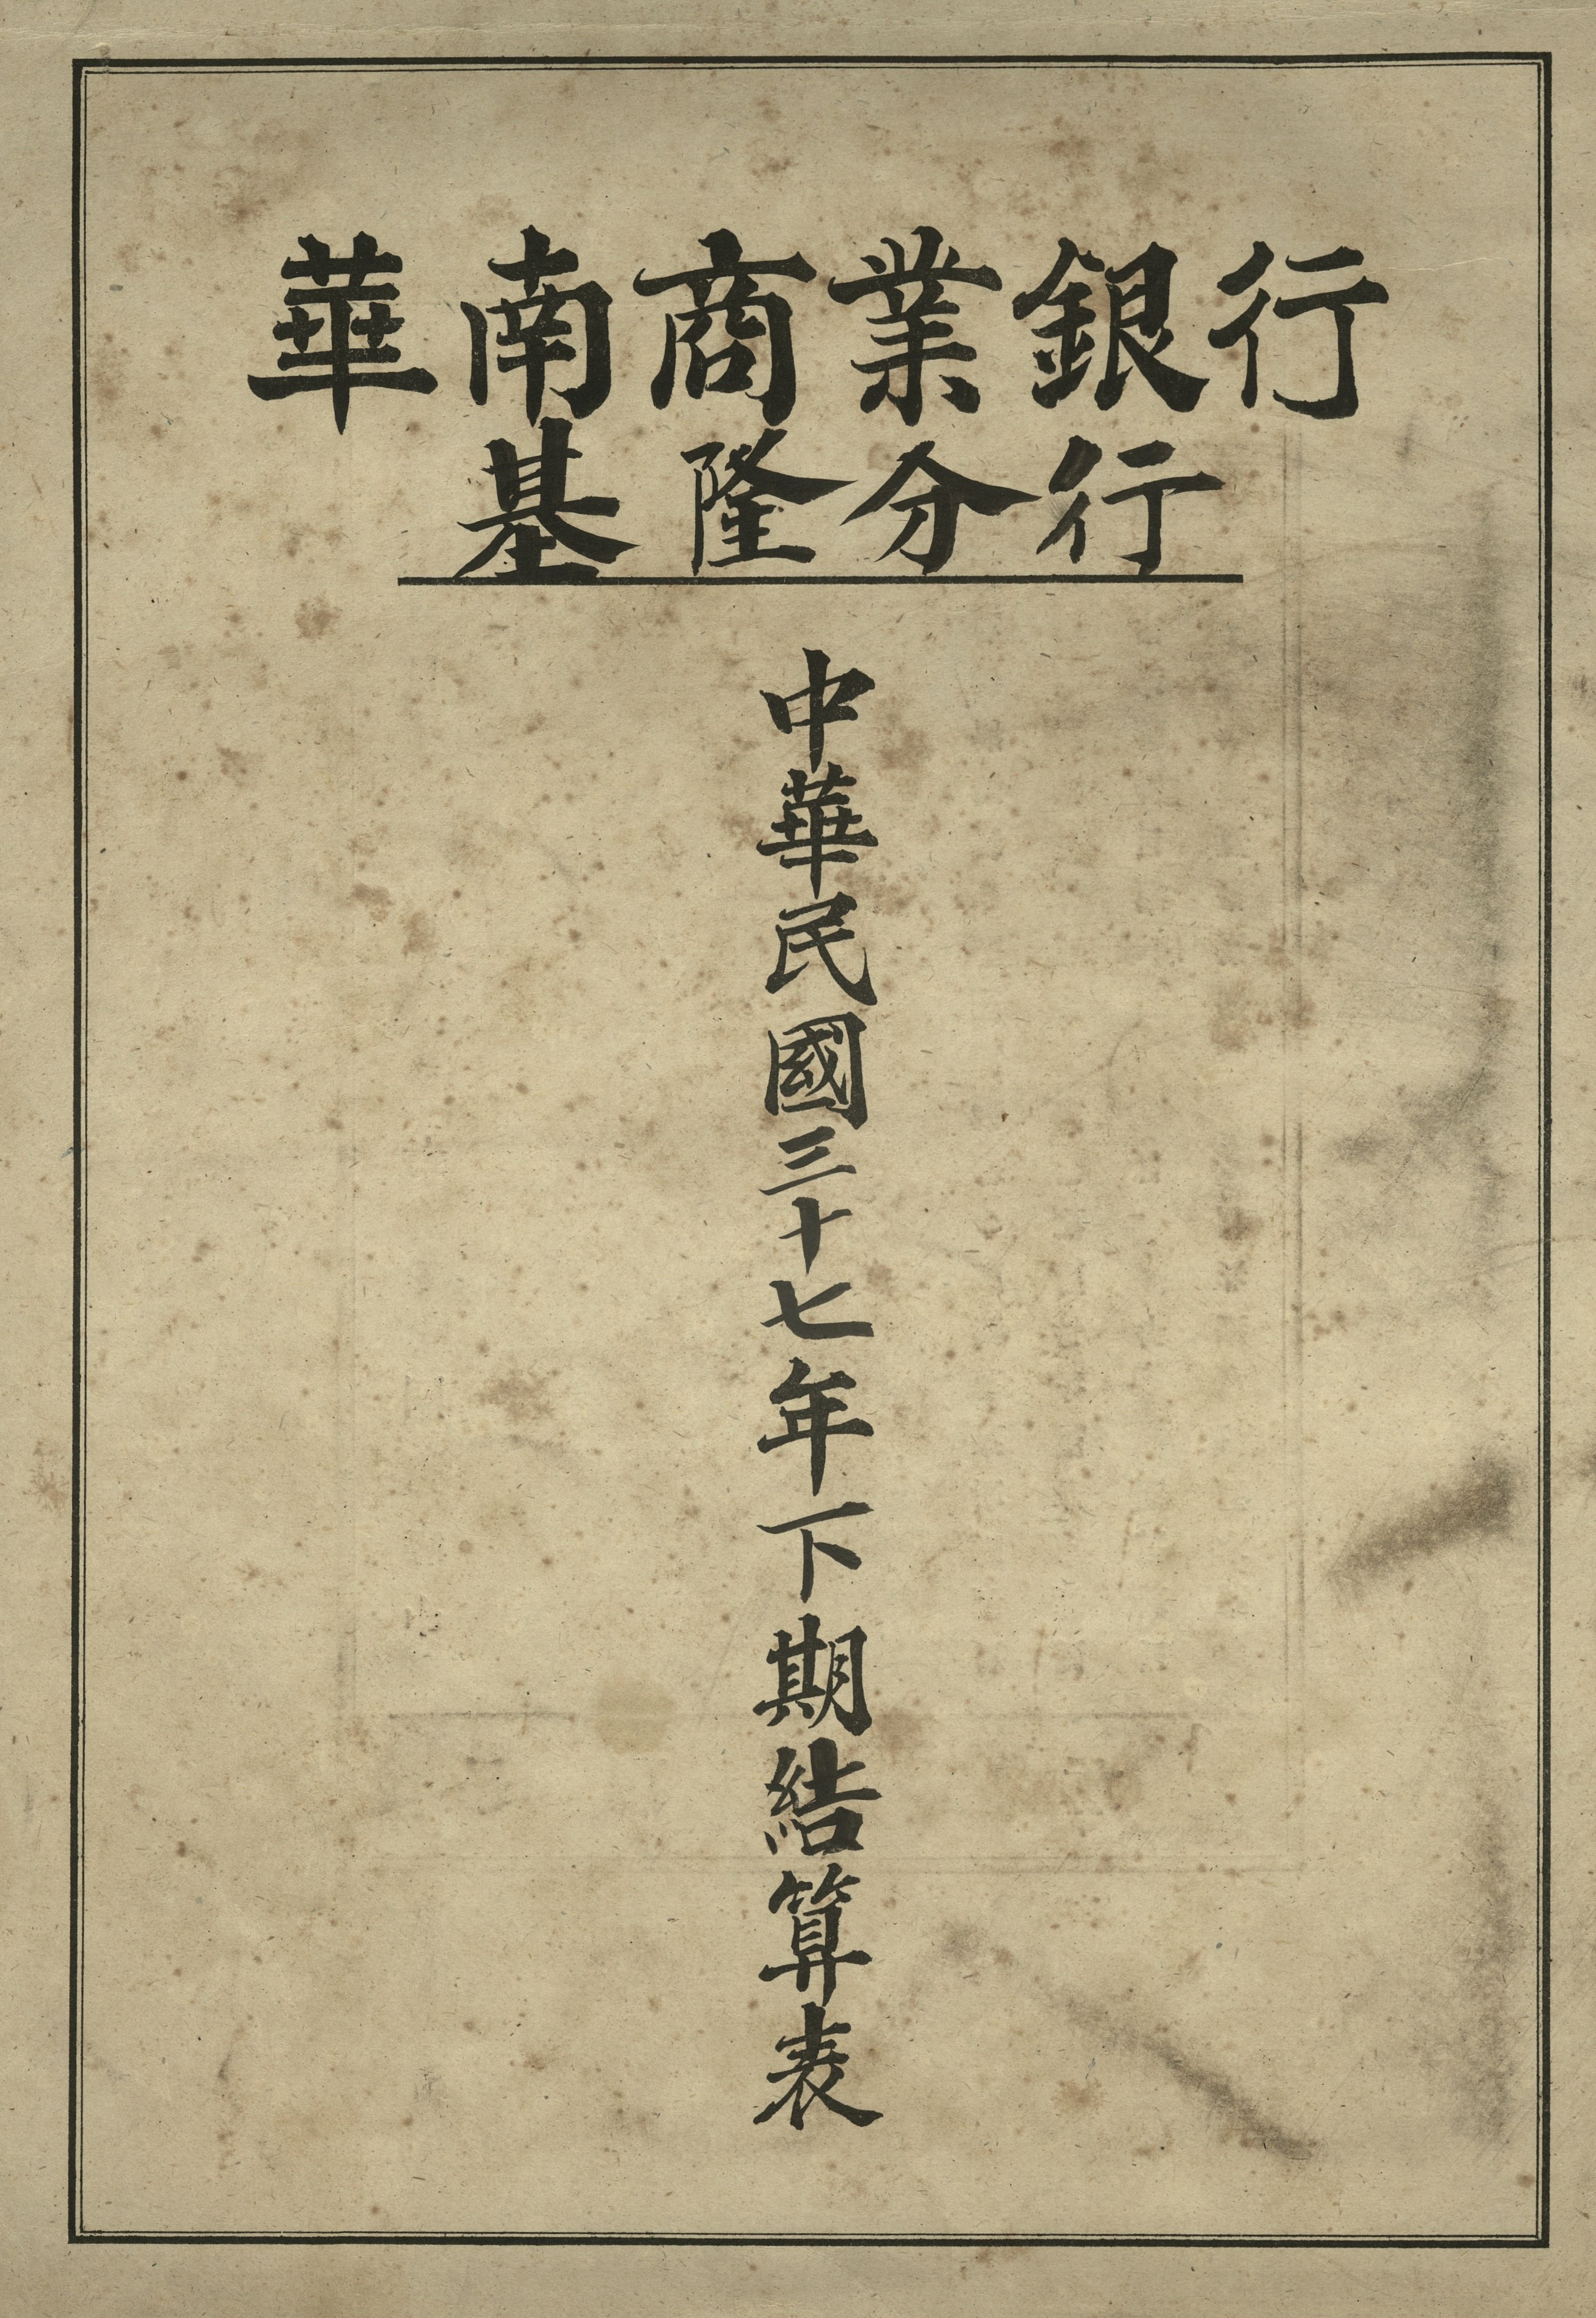 華南商業銀行
基隆分行
中華民國三十七年下期結算表